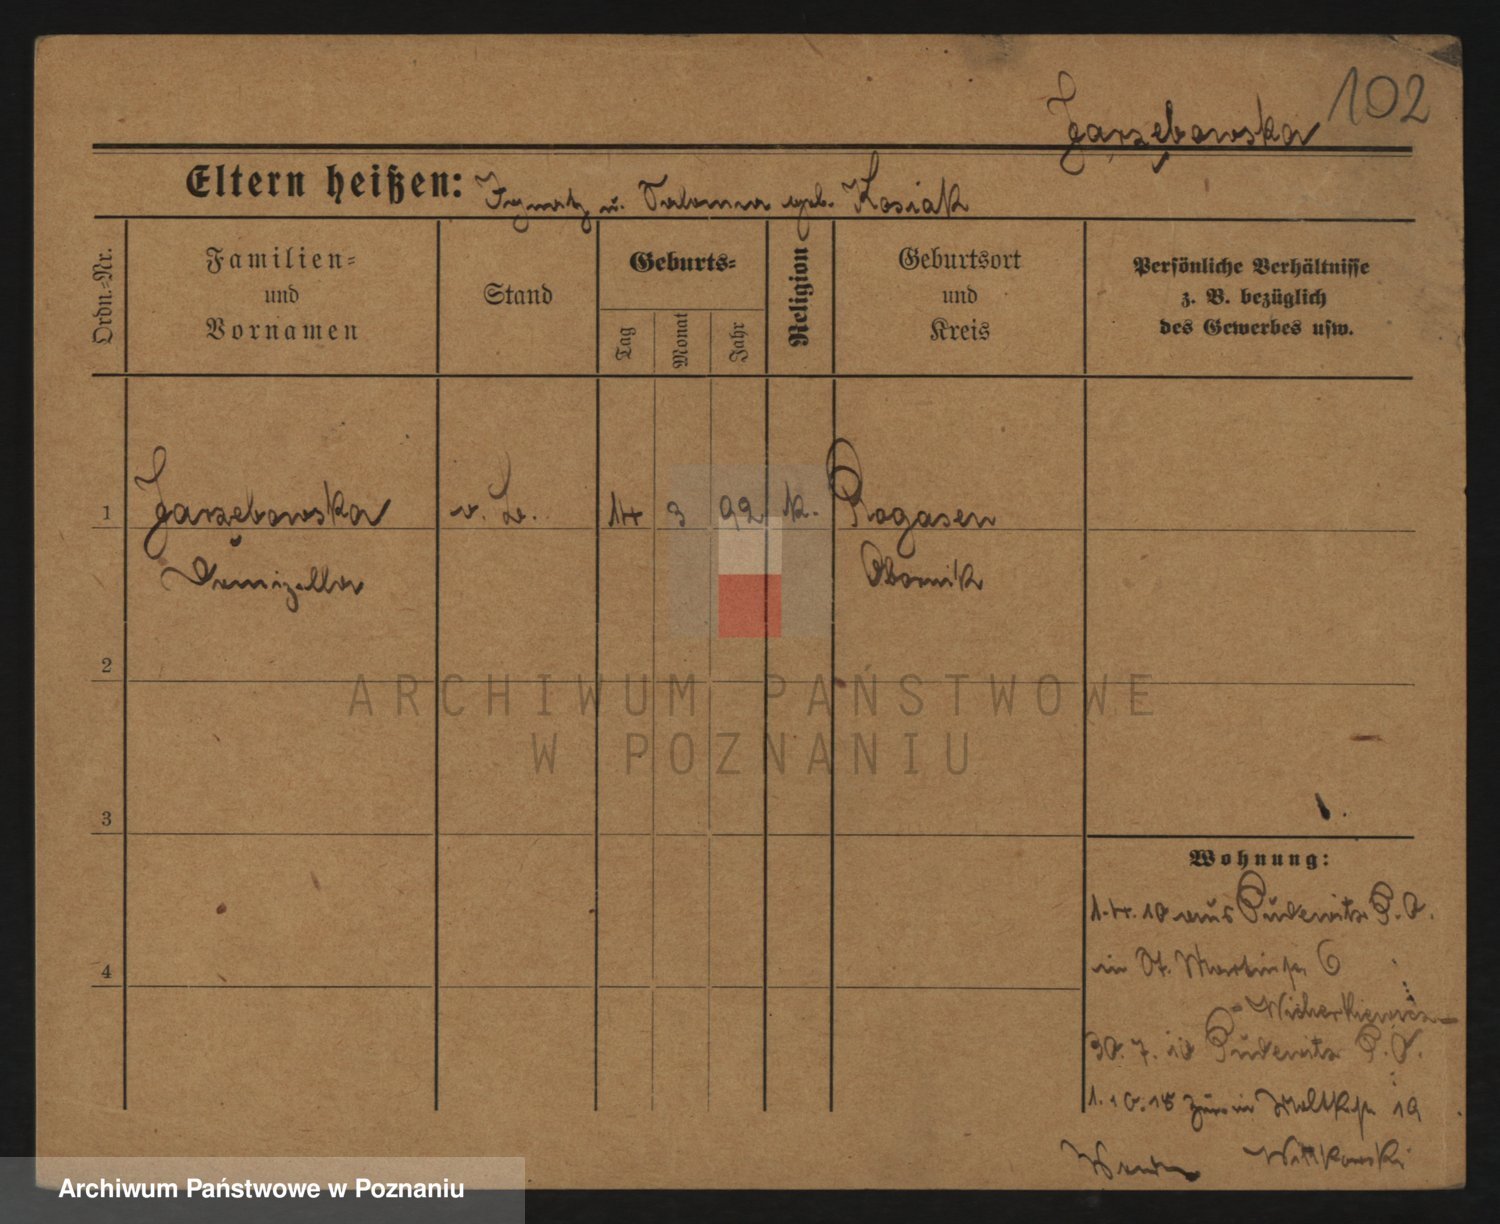 102
Jarzębowska
Eltern heißen: Ignatz u. Salomea geb. Kosiak
Ordn.-Nr.
Familien-
und
Vornamen
Stand
Geburts-
Tag
Monat
Jahr
Religion
Geburtsort
und
Kreis
Persönliche Verhältnisse
z. B. bezüglich
des Gewerbes usw.
1
Jarzebowska
v. L.
14
3
92
k.
Rogasen
Obornik
2
3
4
Wohnung:
1.4.10 aus Pudewitz P. O.
in St. Martinstr 6
- Wicherkiewicz -
30.7.10 Pudewitz P. O.
1.10.18 in Moltkestr 19
Wittkowski
ARCHIWUM PAŃSTWOWE
W POZNANIU
Archiwum Państwowe w Poznaniu